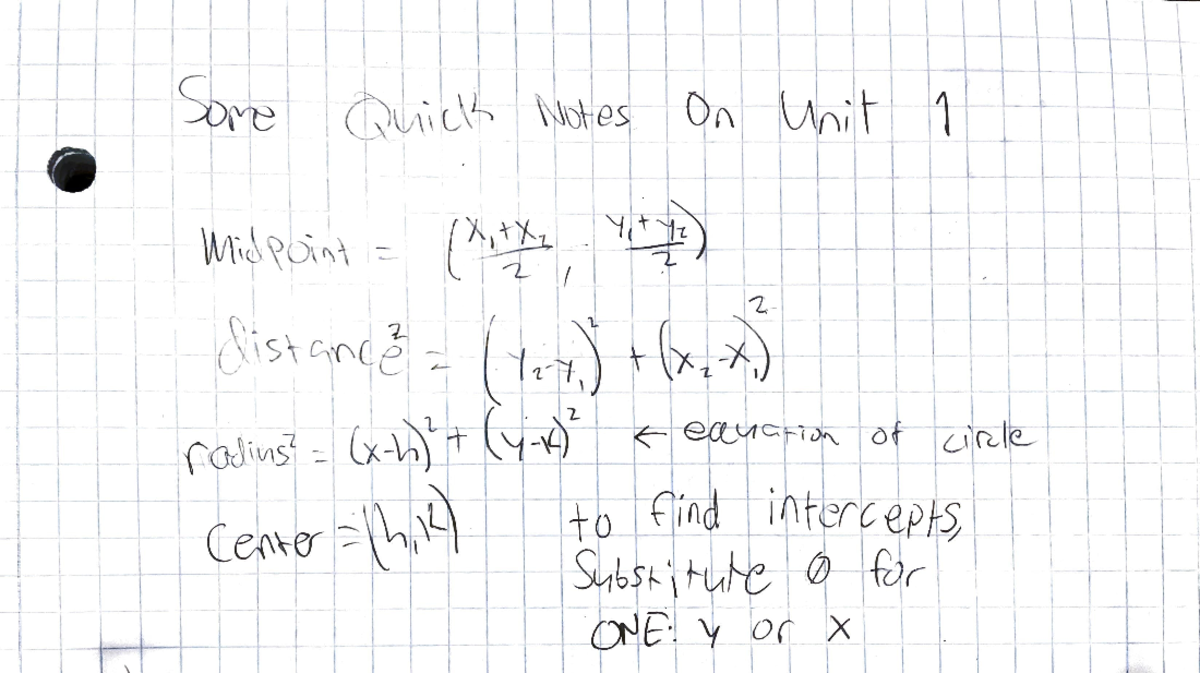 Some Quick Notes On Unit 1
Midpoint = (x₁+x₂/2, y₁+y₂/2)
distance² = (y₂-y₁)² + (x₂-x₁)²
radius² = (x-h)² + (y-k)² ← equation of circle
Center = (h,k)
to find intercepts,
Substitute 0 for
ONE: y or x